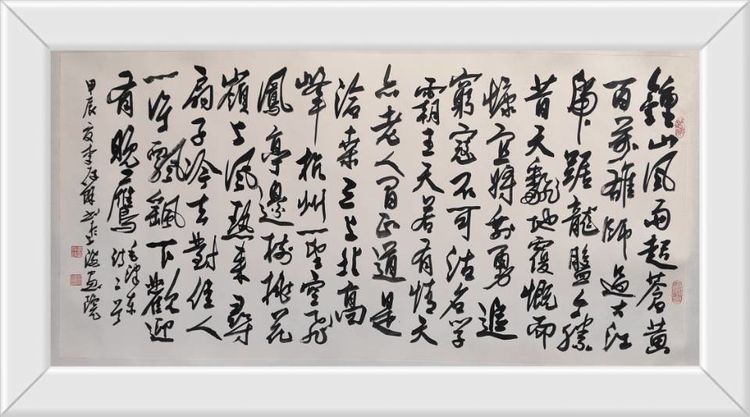 鐘山風雨起蒼黃
百萬雄師過大江
虎踞龍盤今勝
昔天翻地覆慨而
慷宜將剩勇追
窮寇不可沽名學
霸王天若有情天
亦老人間正道是
滄桑三上北高
峰杭州一望空飛
鳳亭邊樹桃花
嶺上風熱來尋
扇子冷去對佳人
一片飄飄下歡迎
有晚鷹
毛澤東
詩二首
甲辰夏李